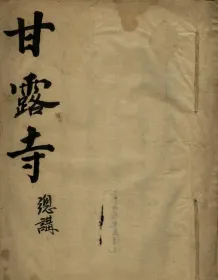 甘露寺
總講